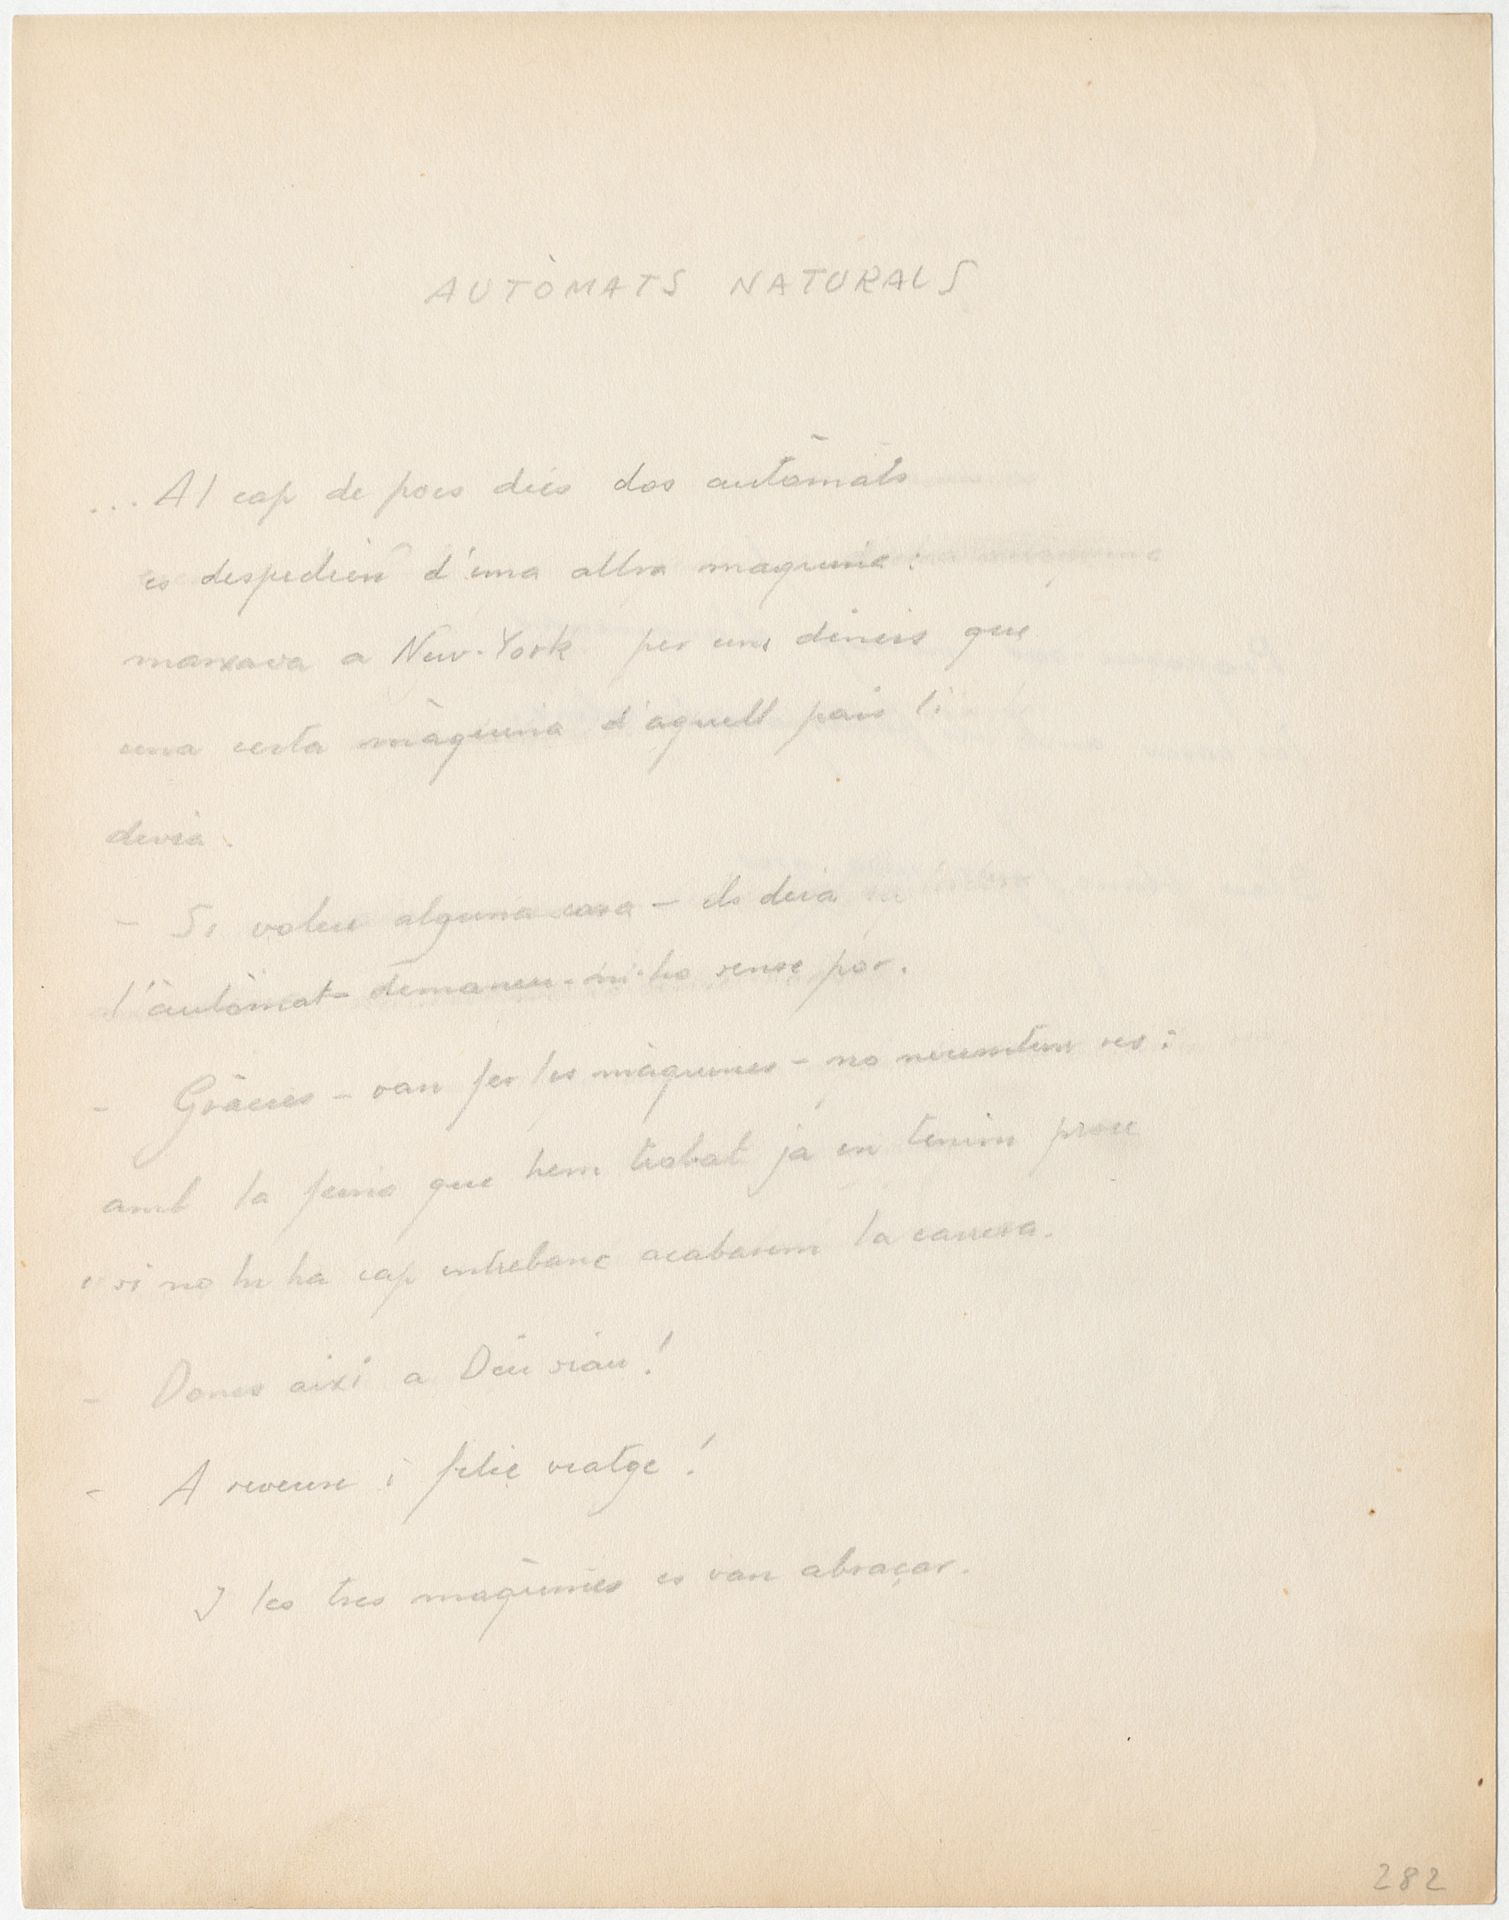 AUTÒMATS NATURALS
... Al cap de pocs dies dos autòmats
es despedien d'una altra maquina:
marxava a New-York per uns diners que
una certa màquina d'aquell pais li
devia.
- Si voleu alguna cosa - els deia
l'autòmat - demaneu-m'ho sense por.
- Gràcies - van fer les màquines - no necessitem res:
amb la feina que hem trobat ja en tenim prou
i si no hi ha cap entrebanc acabarem la carrera.
- Doncs així a Déu siau!
- A reveure i feliç viatge!
I les tres maquines es van abraçar.
282